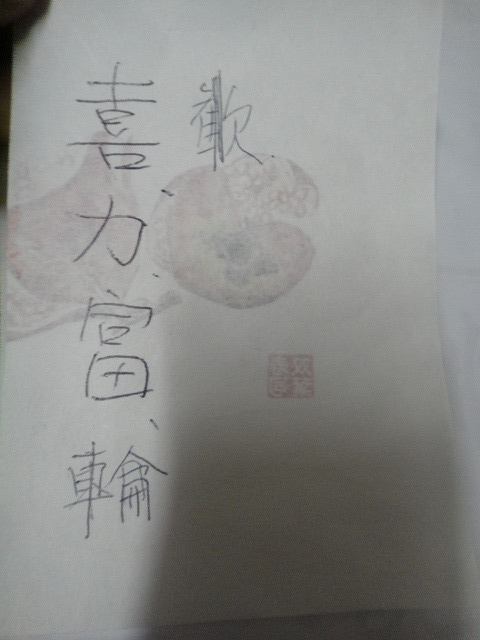 歡
喜、力、富、輪